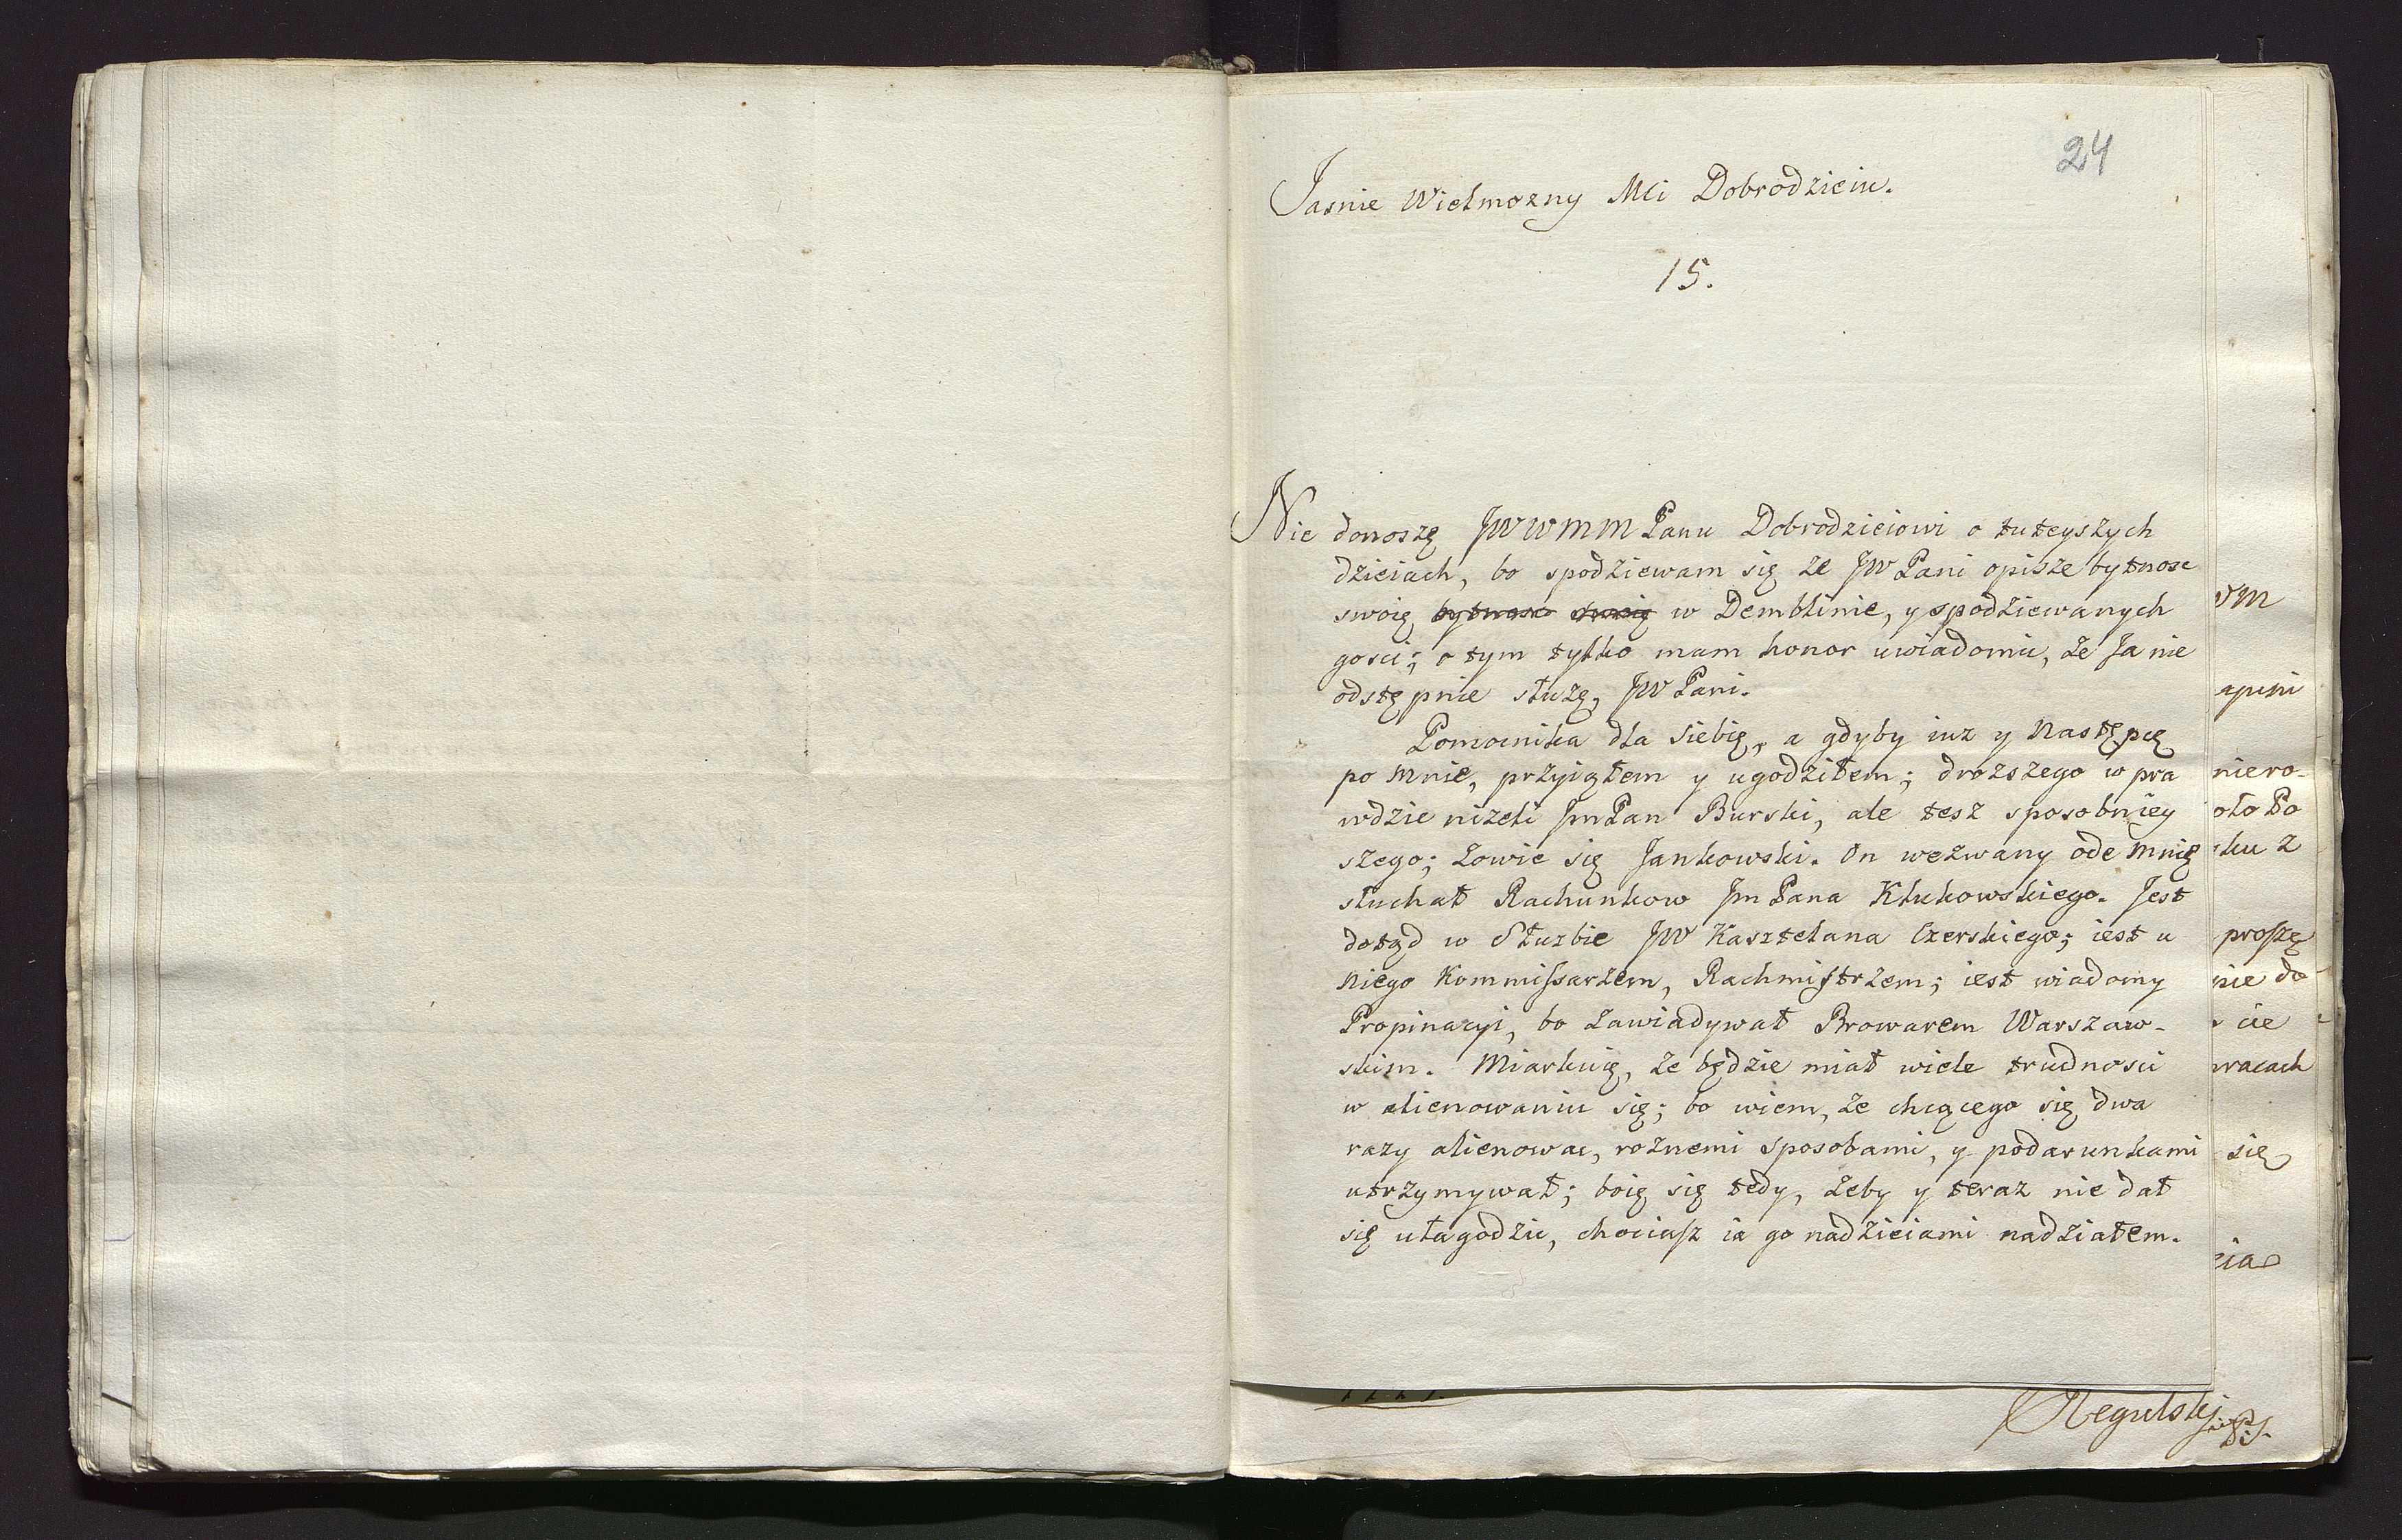 24
Jasnie Wielmozny Mci Dobrodzieiu.
15.
Nie donoszę JWWMMPanu Dobrodzieiowi o tuteyszych
dzieiach, bo spodziewam się ze JWPani opisze bytnosc
swoię bytnosc swoię w Demblinie, y spodziewanych
gosci; o tym tylko mam honor uwiadomic, ze Ja nie
odstępnie służę JWPani.
Pomocnika dla siebie, a gdyby iuz y Następcę
po mnie, przyiąłem y ugodziłem; drozszego w pra
wdzie nizeli JmPan Burski, ale tesz sposobniey
szego; zowie się Jankowski. On wezwany ode mnie
słuchał Rachunkow JmPana Klukowskiego. Jest
dotąd w Służbie JW Kasztelana Czerskiego; iest u
niego Kommissarzem, Rachmistrzem; iest wiadomy
Propinacyi, bo zawiadywał Browarem Warszaw-
skim. Miarkuię, ze będzie miał wiele trudnosci
w alienowaniu się; bo wiem, ze chcącego się dwa
razy alienowac, roznemi sposobami, y podarunkami
utrzymywał; boię się tedy, zeby y teraz nie dał
się ułagodzic, chociasz ia go nadzieiami nadziałem.
niero-
oło Po
sku z
proszę
nie do
cie
się
Regulski